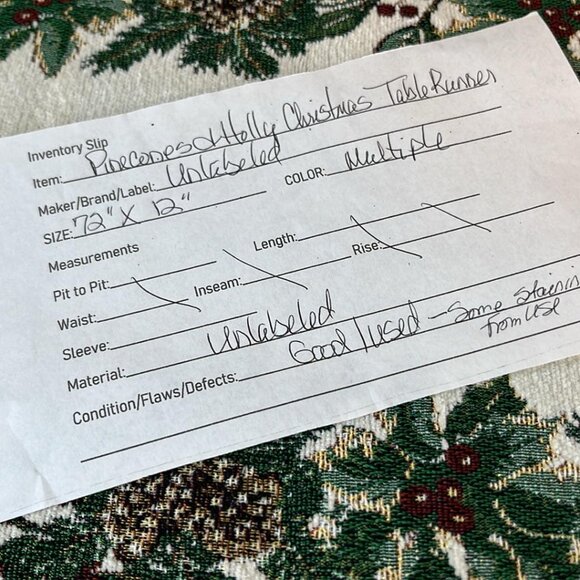 Inventory Slip
Item: Pinecones & Holly Christmas Table Runner
Maker/Brand/Label: Unlabeled
SIZE: 72" X 12" COLOR: Multiple
Measurements
Pit to Pit: Length:
Waist: Inseam: Rise:
Sleeve:
Material: Unlabeled
Condition/Flaws/Defects: Good/used - Some Stainin
from use